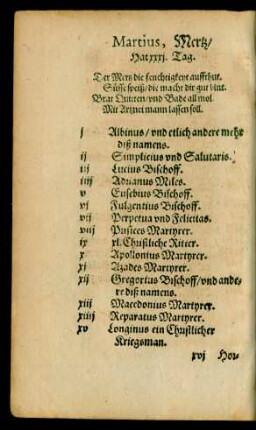 Martius, Mertz/
Hat xxxj. Tag.
Der Mertz die feuchtigkeyt auffthut.
Süsse speiß/die macht dir gut blut.
Brat Quitten/vnd Bade all mol.
Mit Artznei mann lassen soll.
j Albinus/ vnd etlich andere mehr
diß namens.
ij Simplicius vnd Salutaris.
iij Lucius Bischoff.
iiij Adrianus Miles.
v Eusebius Bischoff.
vj Fulgentius Bischoff.
vij Perpetua vnd Felicitas.
viij Pusices Martyrer.
ix xl. Christliche Ritter.
x Apollonius Martyrer.
xj Azades Martyrer.
xij Gregorius Bischoff/vnd ande-
re diß namens.
xiij Macedonius Martyrer.
xiiij Reparatus Martyrer.
xv Longinus ein Christlicher
Kriegsman.
xvj Hey-